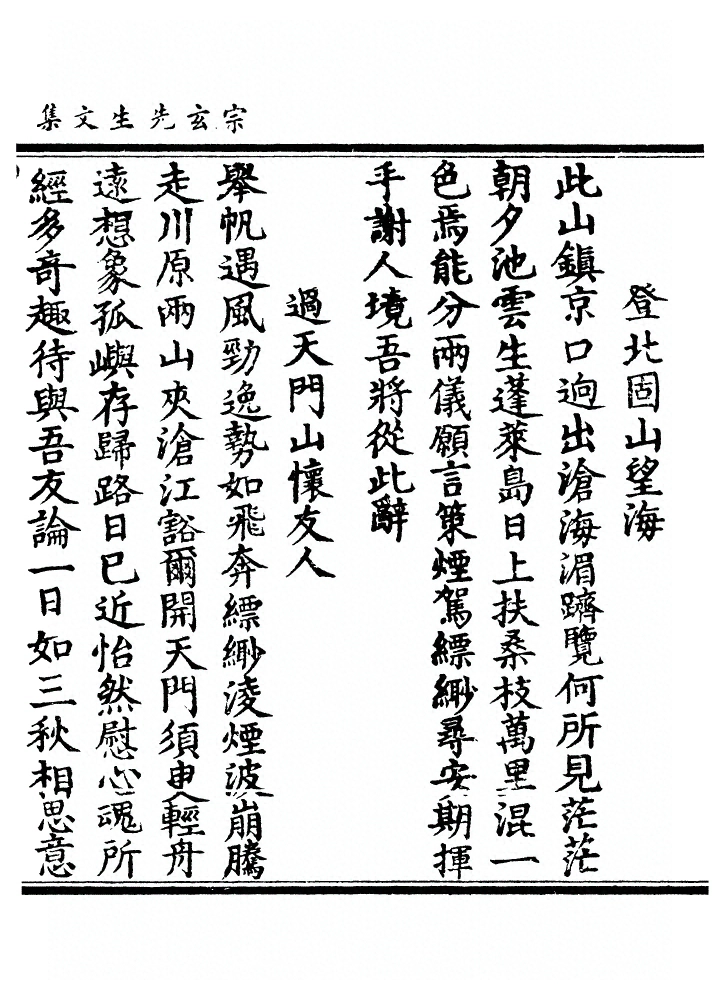 宗玄先生文集
登北固山望海
此山鎮京口逈出滄海湄躋覽何所見茫茫
朝夕池雲生蓬萊島日上扶桑枝萬里混一
色焉能分兩儀願言策煙駕縹緲尋安期揮
手謝人境吾將從此辭
過天門山懷友人
舉帆遇風勁逸勢如飛奔縹緲淩煙波崩騰
走川原兩山夾滄江豁爾開天門須臾輕舟
遠想象孤嶼存歸路日已近怡然慰心魂所
經多奇趣待與吾友論一日如三秋相思意